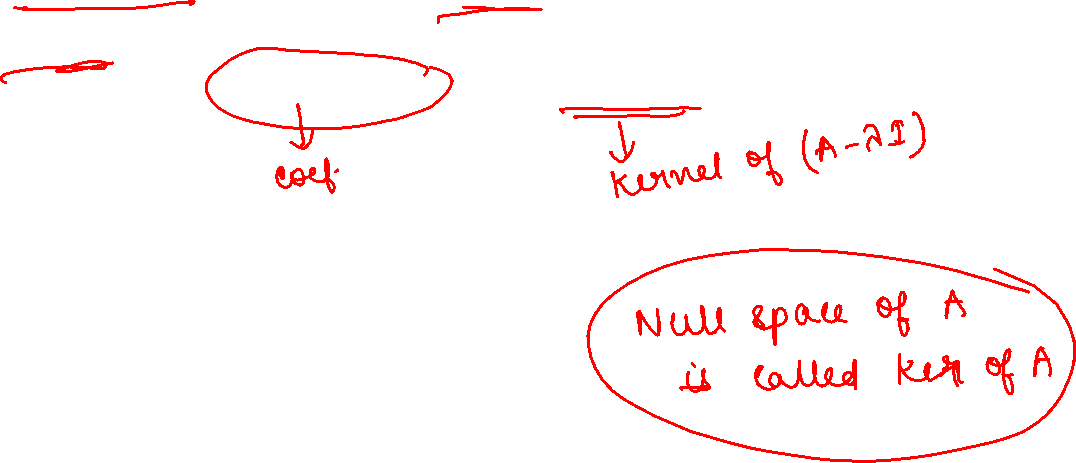 coef.
Kernel of (A-λI)
Null space of A
is called Ker of A